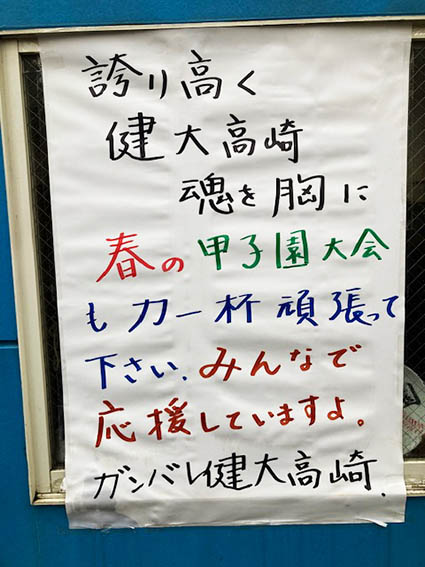 誇り高く
健大高崎
魂を胸に
春の甲子園大会
も力一杯頑張って
下さい.みんなで
応援していますよ。
ガンバレ健大高崎.